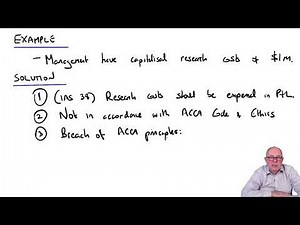 EXAMPLE
- Management have capitalised research costs of $1m.
SOLUTION
① (IAS 38) Research costs should be expensed in P+L.
② Not in accordance with ACCA Code of Ethics
③ Breach of ACCA principles: